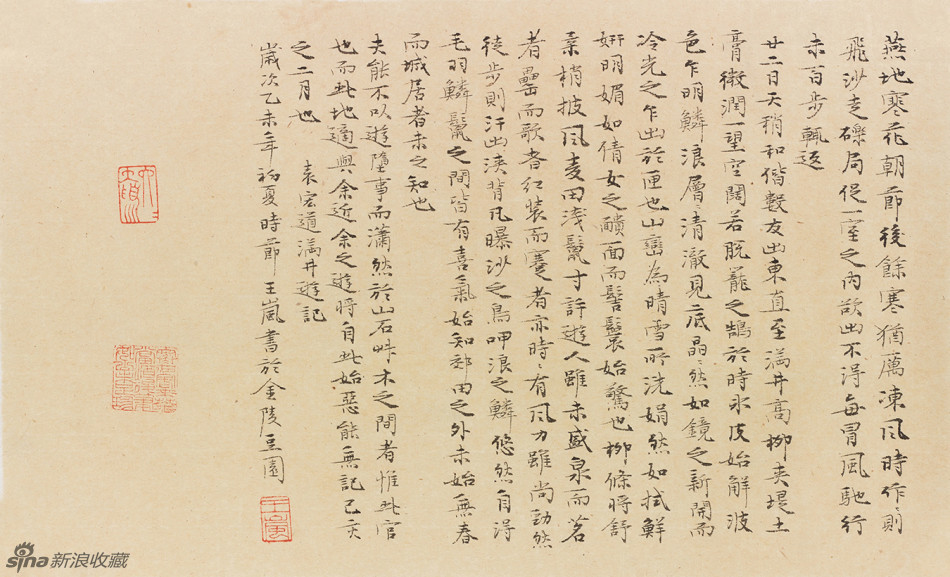 燕地寒花朝節後餘寒猶厲凍風時作則
飛沙走礫局促一室之內欲出不得每冒風馳行
未百步輒返
廿二日天稍和偕數友出東直至滿井高柳夾堤土
膏微潤一望空闊若脫籠之鵠於時冰皮始解波
色乍明鱗浪層清澈見底晶然如鏡之新開而
冷光之乍出於匣也山巒為晴雪所洗娟然如拭鮮
妍明媚如倩女之靧面而髻鬟始驚也柳條將舒
柔梢披風麥田淺鬣寸許遊人雖未盛泉而茗
者罍而歌者紅裝而蹇者亦時〻有風力雖尚勁然
徒步則汗出浹背凡曝沙之鳥呷浪之鱗悠然自得
毛羽鱗鬣之間皆有喜氣始知郊田之外未始無春
而城居者未之知也
夫能不以遊墮事而瀟然於山石艸木之間者惟此官
也而此地適與余近余之遊將自此始惡能無記己亥
之二月也 袁宏道滿井遊記
歲次乙未年初夏時節王嵐書於金陵豆園
王嵐
sina新浪收藏